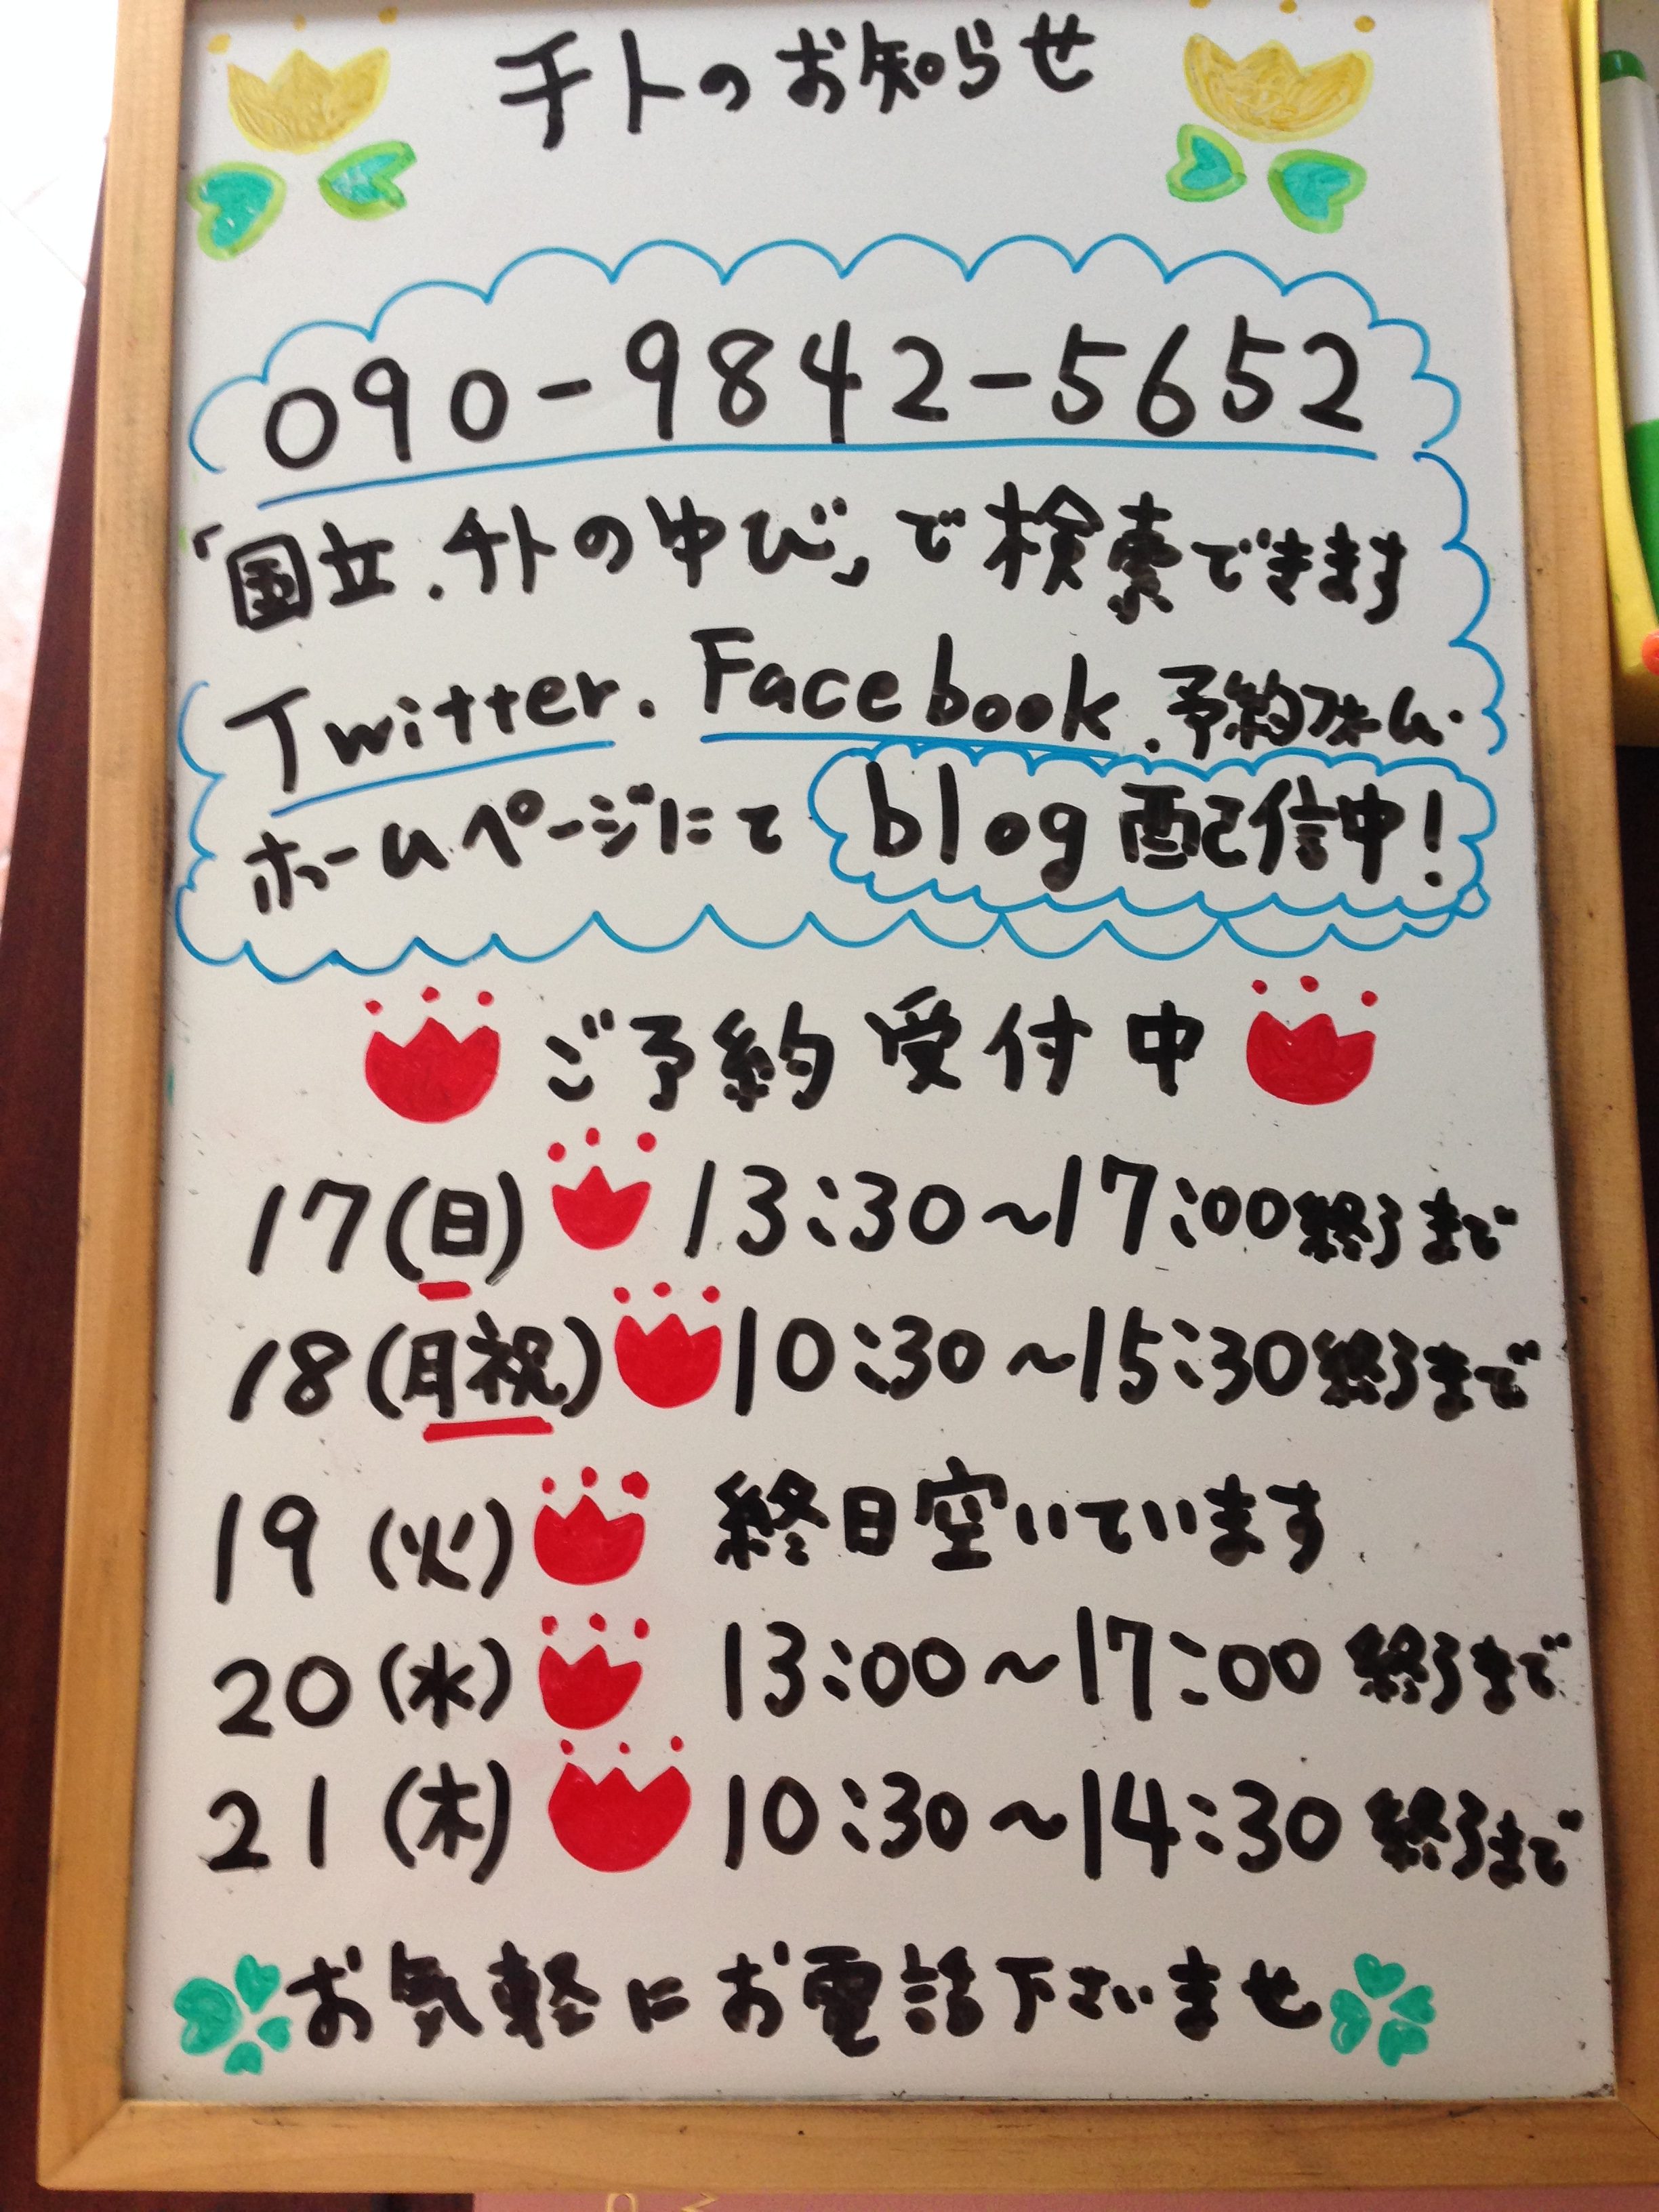 チトのお知らせ
090-9842-5652
「国立.チトのゆび」で検索できます
Twitter.Facebook.予約フォーム.
ホームページにて blog配信中!
ご予約受付中
17(日) 13:30~17:00終了まで
18(月祝) 10:30~15:30終了まで
19(火) 終日空いています
20(水) 13:00~17:00終了まで
21(木) 10:30~14:30終了まで
お気軽にお電話下さいませ